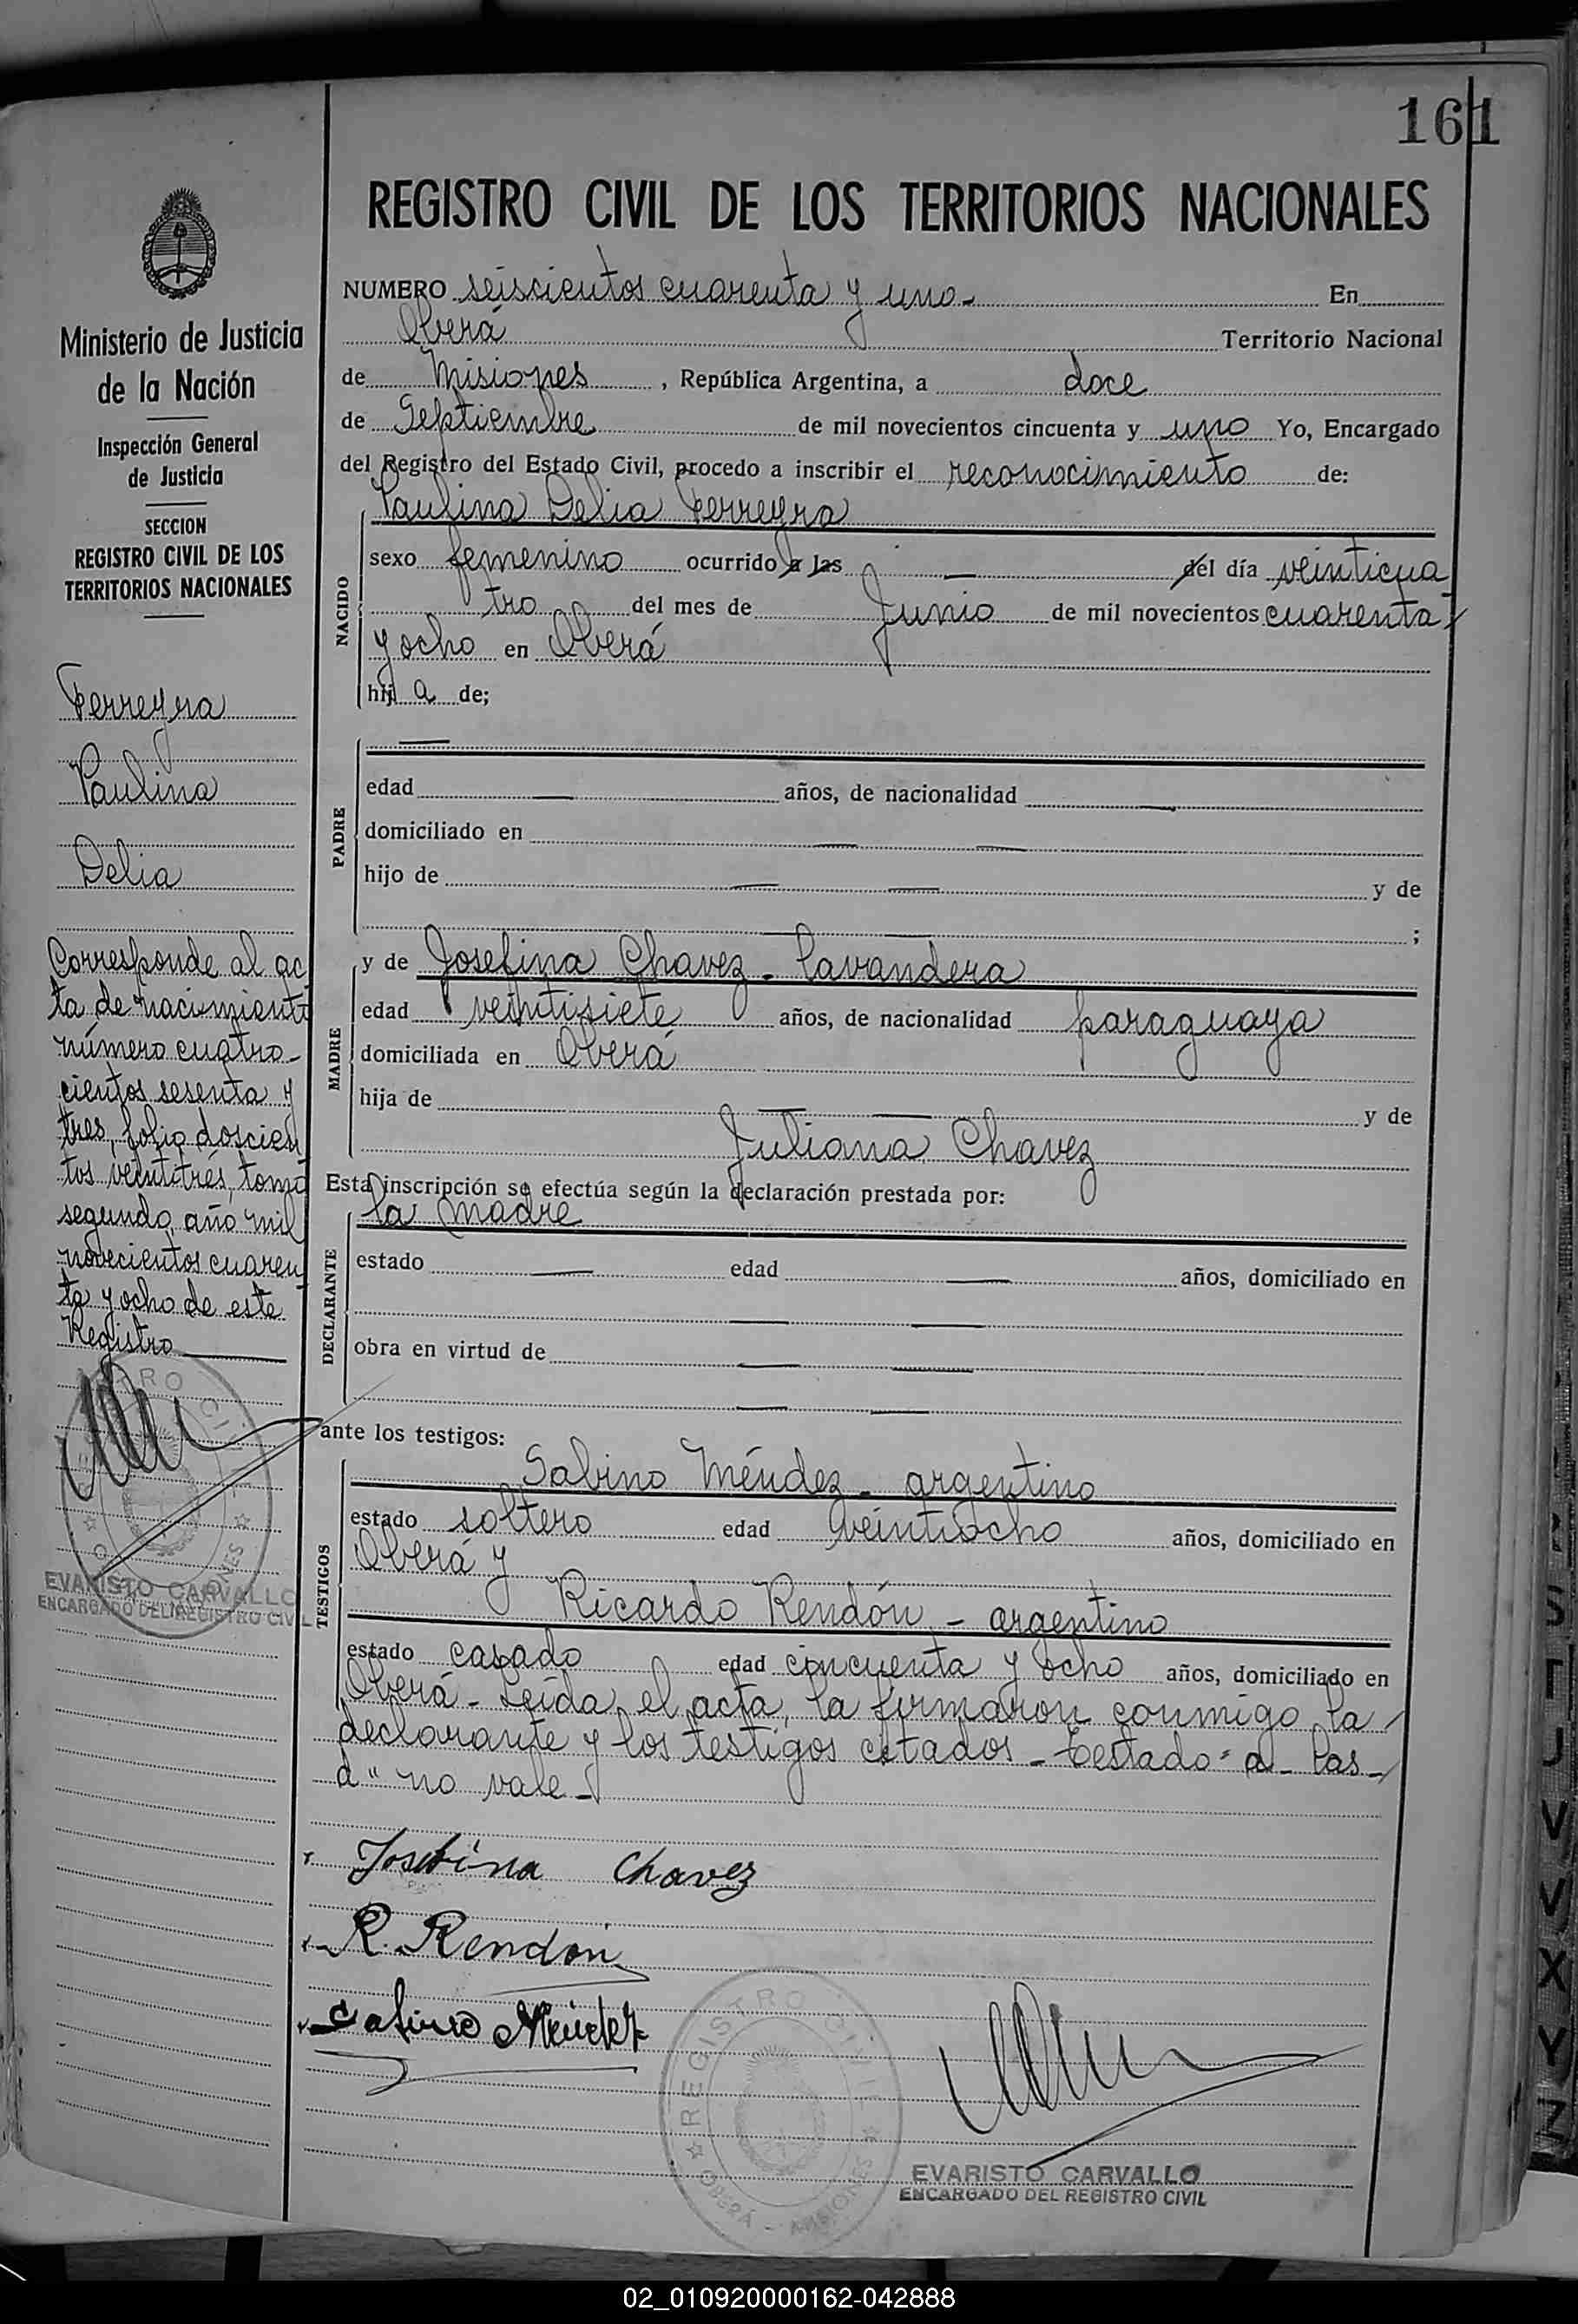 161
REGISTRO CIVIL DE LOS TERRITORIOS NACIONALES
Ministerio de Justicia
de la Nación
Inspección General
de Justicia
SECCION
REGISTRO CIVIL DE LOS
TERRITORIOS NACIONALES
Ferreyra
Paulina
Delia
Corresponde al ac
ta de nacimiento
número cuatro-
cientos sesenta y
tres, folio doscien
tos veintitrés, tomo
segundo, año mil
novecientos cuaren
ta y ocho de este
Registro
EVARISTO CARVALLO
ENCARGADO DEL REGISTRO CIVIL
NUMERO seiscientos cuarenta y uno- En
Oberá Territorio Nacional
de Misiones, República Argentina, a doce
de Septiembre de mil novecientos cincuenta y uno Yo, Encargado
del Registro del Estado Civil, procedo a inscribir el reconocimiento de:
Paulina Delia Ferreyra
NACIDO
sexo femenino ocurrido a las — del día veinticua
tro del mes de Junio de mil novecientos cuarenta
y ocho en Oberá
hij a de;
—
PADRE
edad — años, de nacionalidad —
domiciliado en — —
hijo de — — y de
— — ;
MADRE
y de Josefina Chavez - Lavandera
edad veintisiete años, de nacionalidad paraguaya
domiciliada en Oberá
hija de — — y de
Juliana Chavez
Esta inscripción se efectúa según la declaración prestada por:
la madre
DECLARANTE
estado — edad — años, domiciliado en
— —
obra en virtud de — —
— —
ante los testigos:
TESTIGOS
Sabino Méndez - argentino
estado soltero edad veintiocho años, domiciliado en
Oberá y
Ricardo Rendón - argentino
estado casado edad cincuenta y ocho años, domiciliado en
Oberá - Leída el acta, la firmaron conmigo la
declarante y los testigos citados - Testado "a - las -
d" no vale -
Josefina Chavez
R. Rendón
Sabino Méndez
REGISTRO CIVIL
OBERÁ - MISIONES
EVARISTO CARVALLO
ENCARGADO DEL REGISTRO CIVIL
S
T
J
V
V
X
Y
Z
02_010920000162-042888